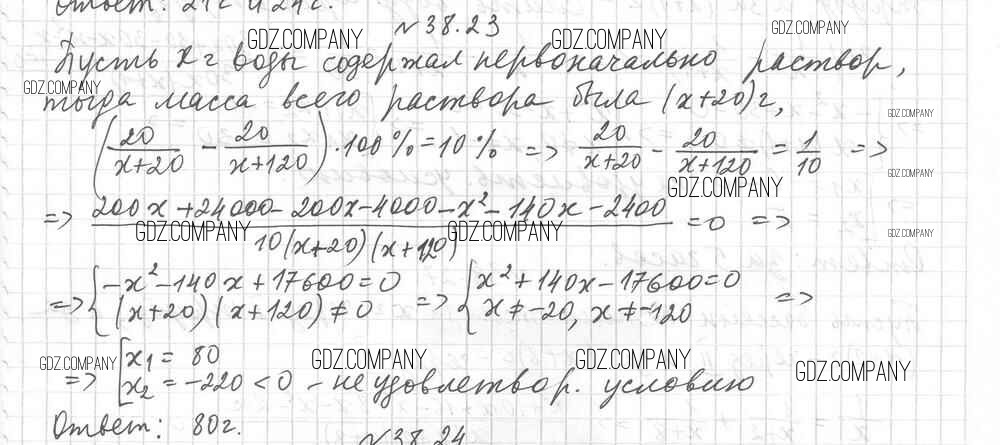 Ответ: 21г и 24г.
N 38.23
Пусть x г воды содержал первоначально раствор,
тогда масса всего раствора была (x+20)г,
(20/(x+20) - 20/(x+120)) · 100% = 10% => 20/(x+20) - 20/(x+120) = 1/10 =>
=> (200x + 24000 - 200x - 4000 - x² - 140x - 2400)/(10(x+20)(x+120)) = 0 =>
=> { -x² - 140x + 17600 = 0 => { x² + 140x - 17600 = 0 =>
(x+20)(x+120) ≠ 0 x ≠ -20, x ≠ -120
=> [ x₁ = 80
x₂ = -220 < 0 - не удовлетвор. условию
Ответ: 80г.
N 38.24
GDZ.COMPANY
GDZ.COMPANY
GDZ.COMPANY
GDZ.COMPANY
GDZ.COMPANY
GDZ.COMPANY
GDZ.COMPANY
GDZ.COMPANY
GDZ.COMPANY
GDZ.COMPANY
GDZ.COMPANY
GDZ.COMPANY
GDZ.COMPANY
GDZ.COMPANY